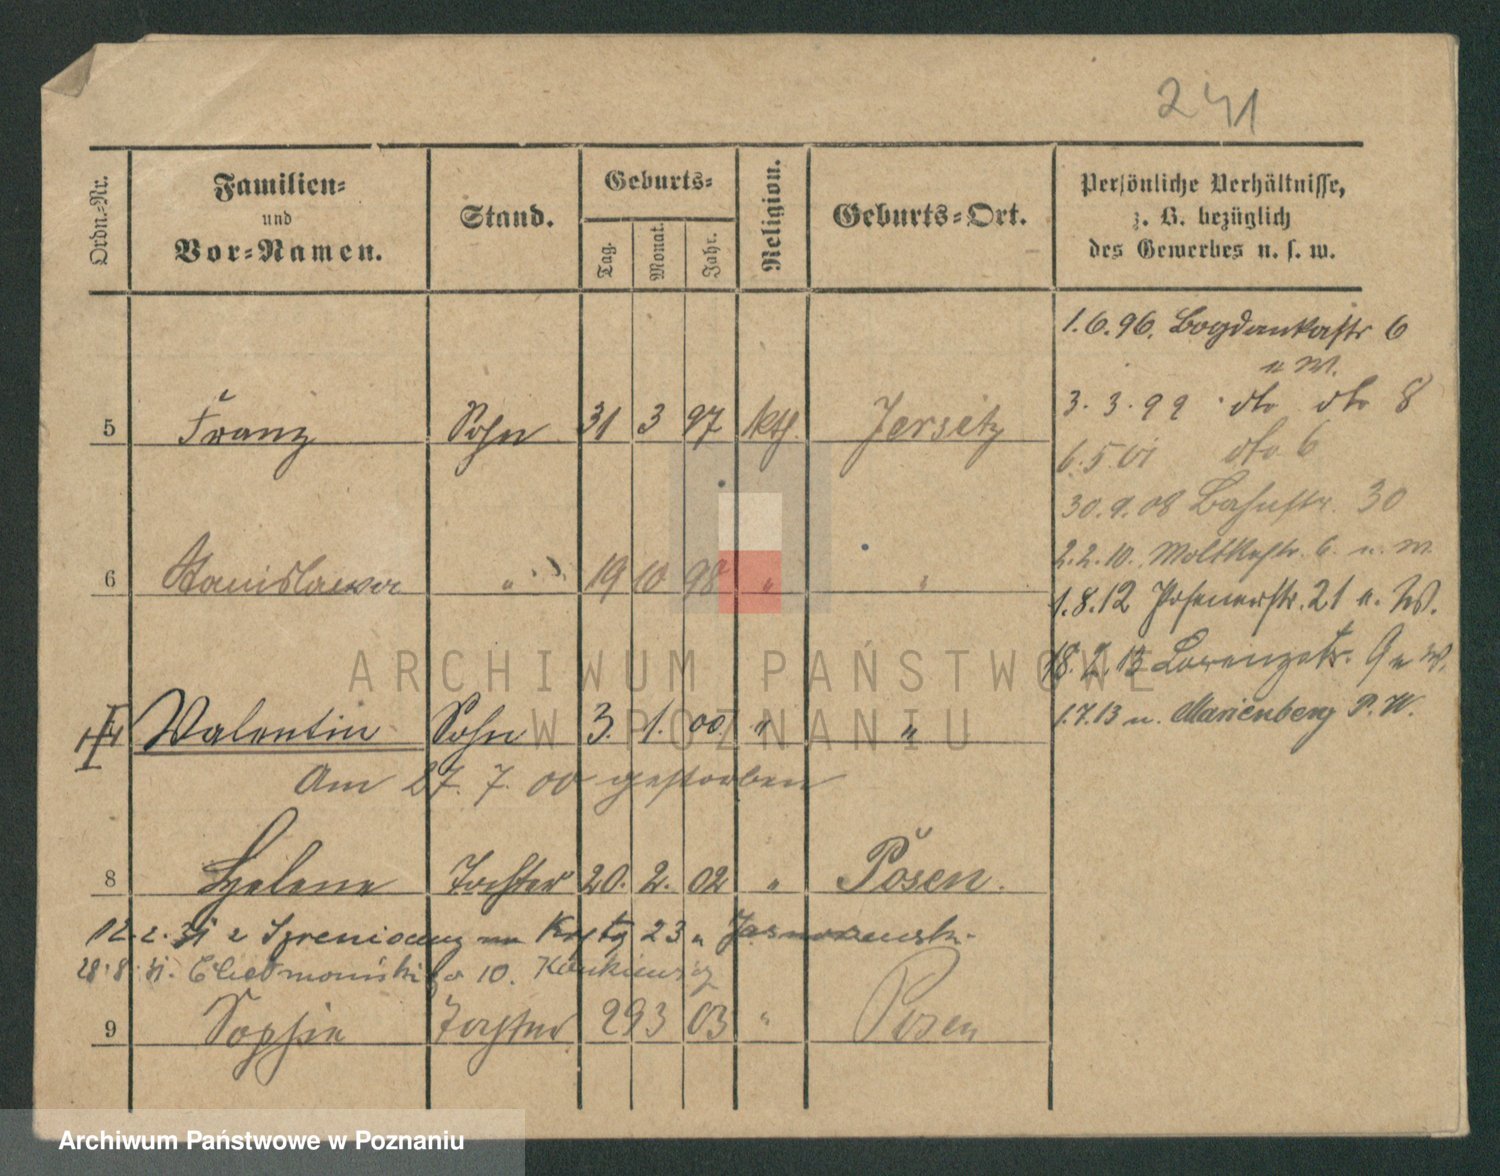 241
Ordn.-Nr.
Familien-
und
Vor-Namen.
Stand.
Geburts-
Tag.
Monat.
Jahr.
Religion.
Geburts-Ort.
Persönliche Verhältnisse,
z. B. bezüglich
des Gewerbes u. s. w.
1.6.96. Bogdankastr 6
u W.
3. 3. 99 dto dto 8
6.5.01 dto 6
30.9.08 Bahnstr. 30
2.2.10. Moltkestr. 6 u. W.
1.8.12 Posenerstr. 21 u. W.
18.2.13 Lorenzstr. 9 u W.
1.7.13 n. Marienberg P. W.
5 Franz Sohn 31 3 97 kth. Jersitz
6 Stanislawa " 19 10 98 " "
Valentin Sohn 3. 1. 00 " "
Am 27. 7. 00 gestorben
8 Helene Tochter 20. 2. 02 " Posen.
12.2.31 23
28.8.31. 10.
9 Sophie Tochter 29 3 03 " Posen
ARCHIWUM PAŃSTWOWE
W POZNANIU
Archiwum Państwowe w Poznaniu